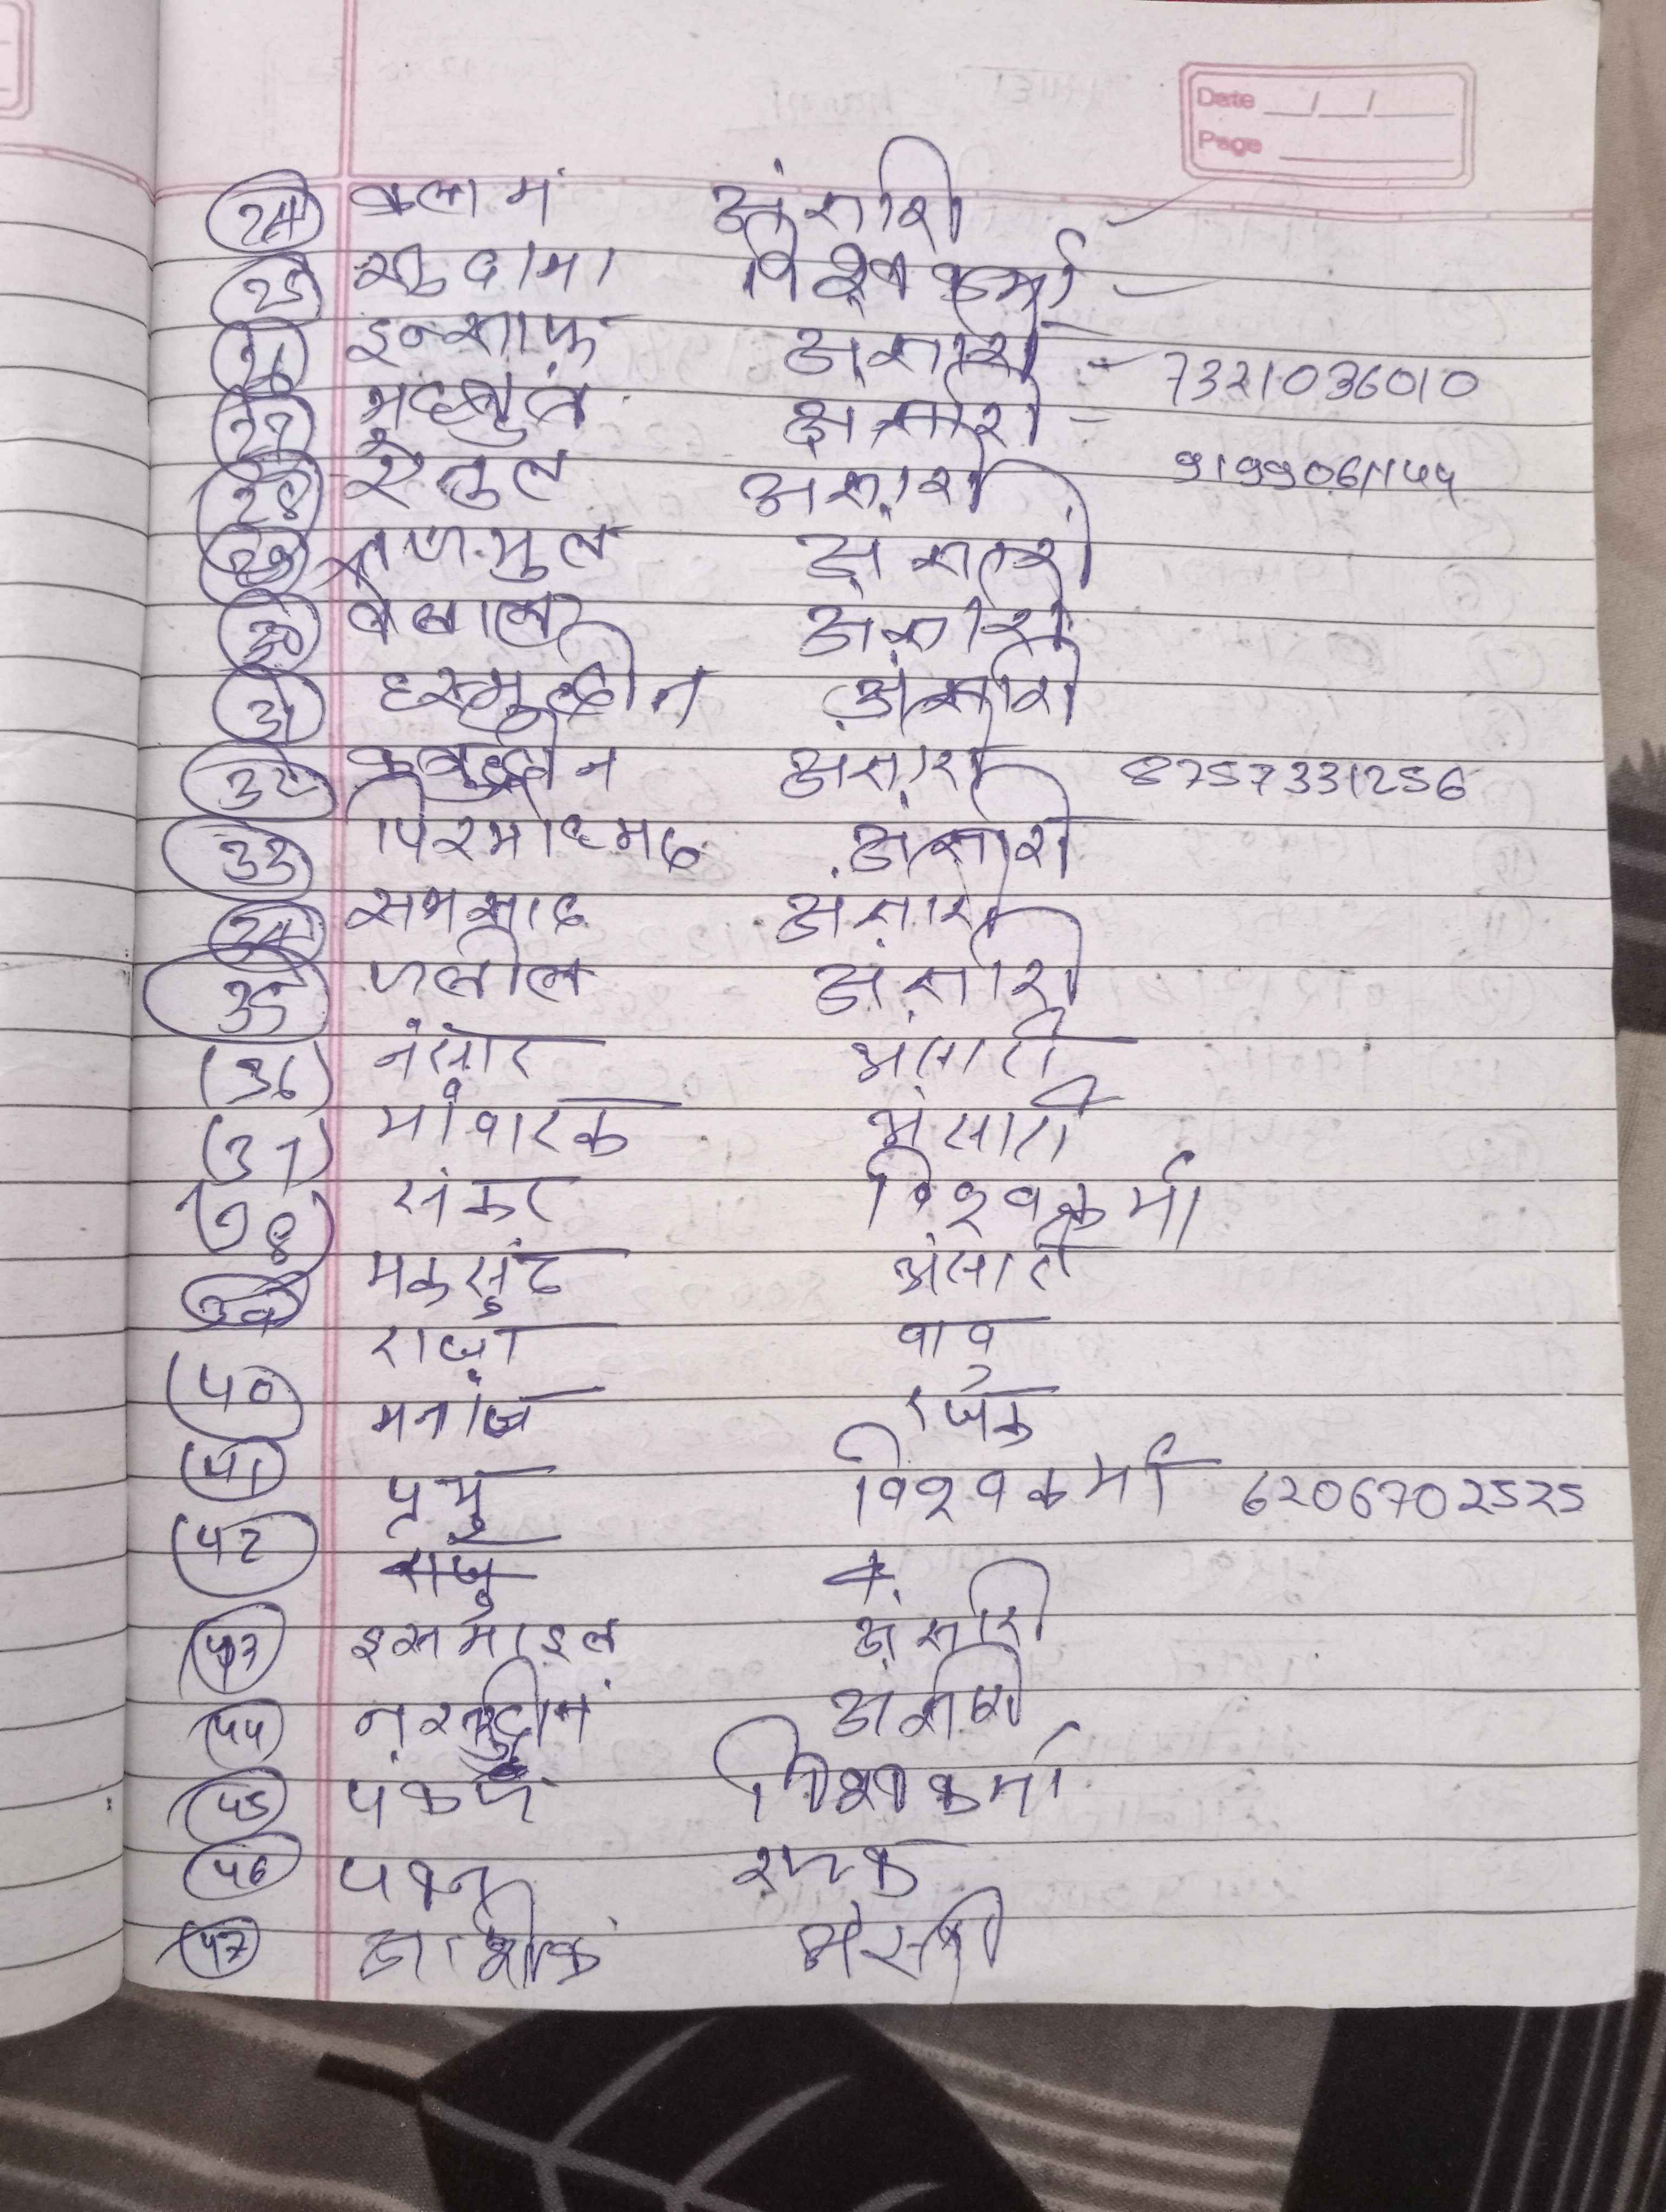 Date __/__/__
Page
24 कलाम अंसारी
25 सुदामा विश्वकर्मा
26 इन्साफ अंसारी - 7321036010
27 अंसारी -
28 अंसारी 9199061144
29 अंसारी
30 अंसारी
31 हसमुद्दीन अंसारी
32 अंसारी 8757331256
33 पिरमोहमद अंसारी
34 समसाद अंसारी
35 जलील अंसारी
(36) नंसार अंसारी
(37) मोवारक अंसारी
(38) संकर विश्वकर्मा
39 मकसुद अंसारी
40 राजा वावु
मनोज रजक
41 प्रभु विश्वकर्मा 6206702525
42 राजु
43 इसमाइल अंसारी
44 अंसारी
45 पंकज विश्वकर्मा
46 रजक
47